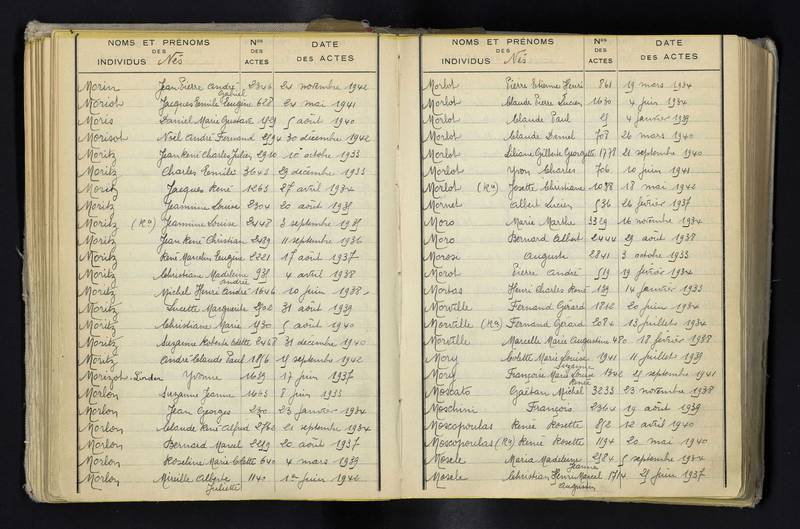 NOMS ET PRÉNOMS
DES
INDIVIDUS Nés
Nos
DES
ACTES
DATE
DES ACTES
Morin Jean Pierre André 2346 24 novembre 1942
Gabriel
Moriot Jacques Emile Eugène 628 24 mai 1941
Moris Daniel Marie Gustave 1929 5 août 1940
Morisot Noël André Fernand 2594 30 décembre 1942
Moritz Jean René Charles Julien 2910 10 octobre 1933
Moritz Charles Emile 3643 29 décembre 1933
Moritz Jacques René 1263 27 avril 1934
Moritz Jeannine Louise 2304 20 août 1935
Moritz (Ra) Jeannine Louise 2448 3 septembre 1935
Moritz Jean René Christian 2489 11 septembre 1936
Moritz René Marcelin Eugène 2221 17 août 1937
Moritz Christiane Madeleine 931 4 avril 1938
Andrée
Moritz Michel Henri André 1646 10 juin 1938
Moritz Lucette Marguerite 2502 31 août 1939
Moritz Christiane Marie 1930 5 août 1940
Moritz Suzanne Roberte Colette 2468 31 décembre 1940
Moritz André Claude Paul 1816 15 septembre 1942
Morizot-Linder Yvonne 1659 17 juin 1937
Morlon Suzanne Jeanne 1663 8 juin 1933
Morlon Jean Georges 230 23 janvier 1934
Morlon Claude René Alfred 2762 21 septembre 1934
Morlon Bernard Marcel 2259 20 août 1937
Morlon Roseline Marie Colette 640 4 mars 1939
Morlon Mireille Alberte 1140 1er juin 1942
Juliette
NOMS ET PRÉNOMS
DES
INDIVIDUS Nés
Nos
DES
ACTES
DATE
DES ACTES
Morlot Pierre Etienne Henri 861 19 mars 1934
Morlot Claude Pierre Lucien 1630 4 juin 1934
Morlot Claude Paul 4 janvier 1939
Morlot Claude Daniel 708 26 mars 1940
Morlot Liliane Gilberte Georgette 1778 21 septembre 1940
Morlot Yvon Charles 706 10 juin 1941
Morlot (Ra) Josette Christiane 1038 18 mai 1942
Mornet Albert Lucien 536 26 février 1937
Moro Marie Marthe 3329 16 novembre 1934
Moro Bernard Albert 2444 29 août 1938
Morosi Auguste 2841 3 octobre 1933
Morot Pierre André 519 19 février 1934
Mortas Henri Charles René 139 14 janvier 1933
Morville Fernand Gérard 1812 20 juin 1934
Morville (Ra) Fernand Gérard 2084 13 juillet 1934
Morville Marcelle Marie Augustine 480 18 février 1938
Mory Colette Marie Louise 1941 11 juillet 1939
Suzanne
Mory François Marie Louis 1742 21 septembre 1941
René
Moscato Gaëtan Michel 3233 23 novembre 1938
Moschini François 2364 19 août 1939
Moscopoulas Renée Rosette 852 12 avril 1940
Moscopoulas (Ra) Renée Rosette 1194 20 mai 1940
Mosele Maria Madeleine 2584 5 septembre 1934
Jeanne
Mosele Christian Henri Marcel 1714 25 juin 1937
Augustin